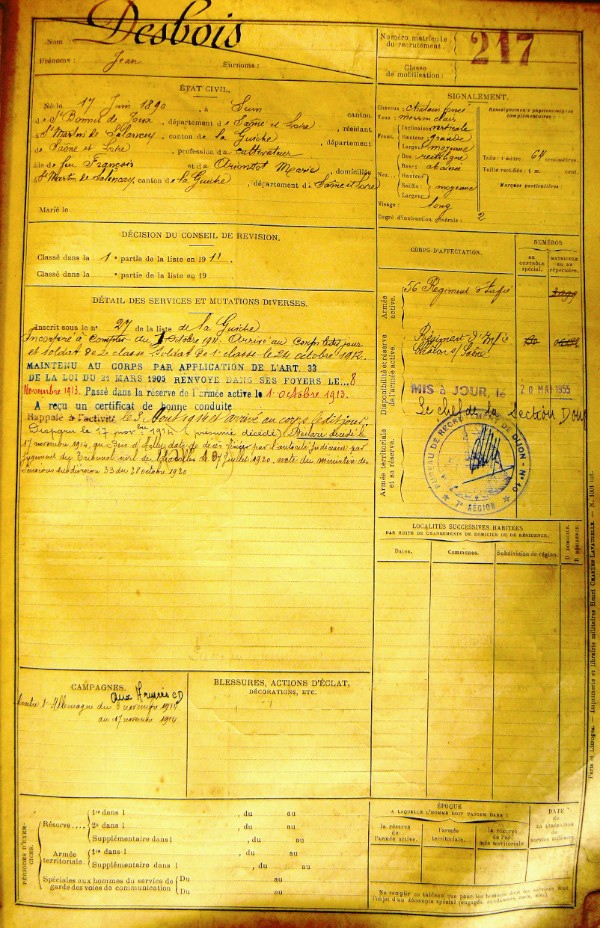 Nom Desbois
Prénoms : Jean Surnoms :
Numéro matricule du recrutement : 217
Classe de mobilisation :
ÉTAT CIVIL.
Né le 17 Juin 1890, à Suin, canton
de St Bonnet de Joux, département de Saône et Loire, résidant
à St Martin de Salencey, canton de la Guiche, département
de Saône et Loire, profession de cultivateur
fils de feu François et d Marie, domiciliés
à St Martin de Salencey, canton de la Guiche, département de Saône et Loire
Marié le
SIGNALEMENT.
Cheveux : Chatain foncé
Yeux : marron clair
Front Inclinaison verticale
Hauteur grande
Largeur moyenne
Nez Dos rectiligne
Base abaissée
Hauteur
Saillie moyenne
Largeur
Visage : long
Degré d'instruction générale : 2
Renseignements physionomiques complémentaires :
Taille : 1 mètre 64 centimètres
Taille rectifiée : 1 m. cent.
Marques particulières :
DÉCISION DU CONSEIL DE REVISION.
Classé dans la 1e partie de la liste en 1911
Classé dans la e partie de la liste en 19
DÉTAIL DES SERVICES ET MUTATIONS DIVERSES.
Inscrit sous le no 27 de la liste de la Guiche
Incorporé à compter du octobre 1911. Arrivé au corps ledit jour
et soldat de 2e classe. Soldat de 1e classe le 24 octobre 1912.
MAINTENU AU CORPS PAR APPLICATION DE L'ART. 33
DE LA LOI DU 21 MARS 1905 RENVOYÉ DANS SES FOYERS LE... 8
Novembre 1913. Passé dans la réserve de l'armée active le 1 octobre 1913.
A reçu un certificat de bonne conduite
Rappelé à l'activité le août 1914 et arrivé au corps ledit jour.
Disparu le 17 novembre 1914 Déclaré décédé le
17 novembre 1914 par
jugement du Tribunal civil de Charolles juillet 1920, note du ministère des
Pensions subdivision 53 du 28 octobre 1920
CORPS D'AFFECTATION.
NUMÉROS
au contrôle spécial.
matricule ou au répertoire.
Armée active.
56 Régiment d'Infie
Disponibilité et réserve de l'armée active.
Régiment d'Infie
Armée territoriale et sa réserve.
MIS à JOUR, le 20 MAI 1955
Le chef de la Section
BUREAU DE RECRUTEMENT DE DIJON
7e RÉGION
LOCALITÉS SUCCESSIVES HABITÉES
PAR SUITE DE CHANGEMENTS DE DOMICILE OU DE RÉSIDENCE.
Dates. Communes. Subdivision de région. D. DOMICILE. R. RÉSIDENCE.
CAMPAGNES.
Aux Armées CD
Contre l'Allemagne du novembre 1914
au 17 novembre 1914
BLESSURES, ACTIONS D'ÉCLAT,
DÉCORATIONS, ETC.
PÉRIODES D'EXERCICES.
Réserve.... 1re dans l , du au
2e dans l , du au
Supplémentaire dans l , du au
Armée territoriale. 1re dans l , du au
Supplémentaire dans l , du au
Spéciales aux hommes du service de garde des voies de communication Du au
Du au
ÉPOQUE
A LAQUELLE L'HOMME DOIT PASSER DANS :
la réserve de l'armée active.
l'armée territoriale.
la réserve de l'armée territoriale.
DATE de la libération du service militaire.
Paris et Limoges. — Imprimerie et librairie militaires Henri CHARLES-LAVAUZELLE.